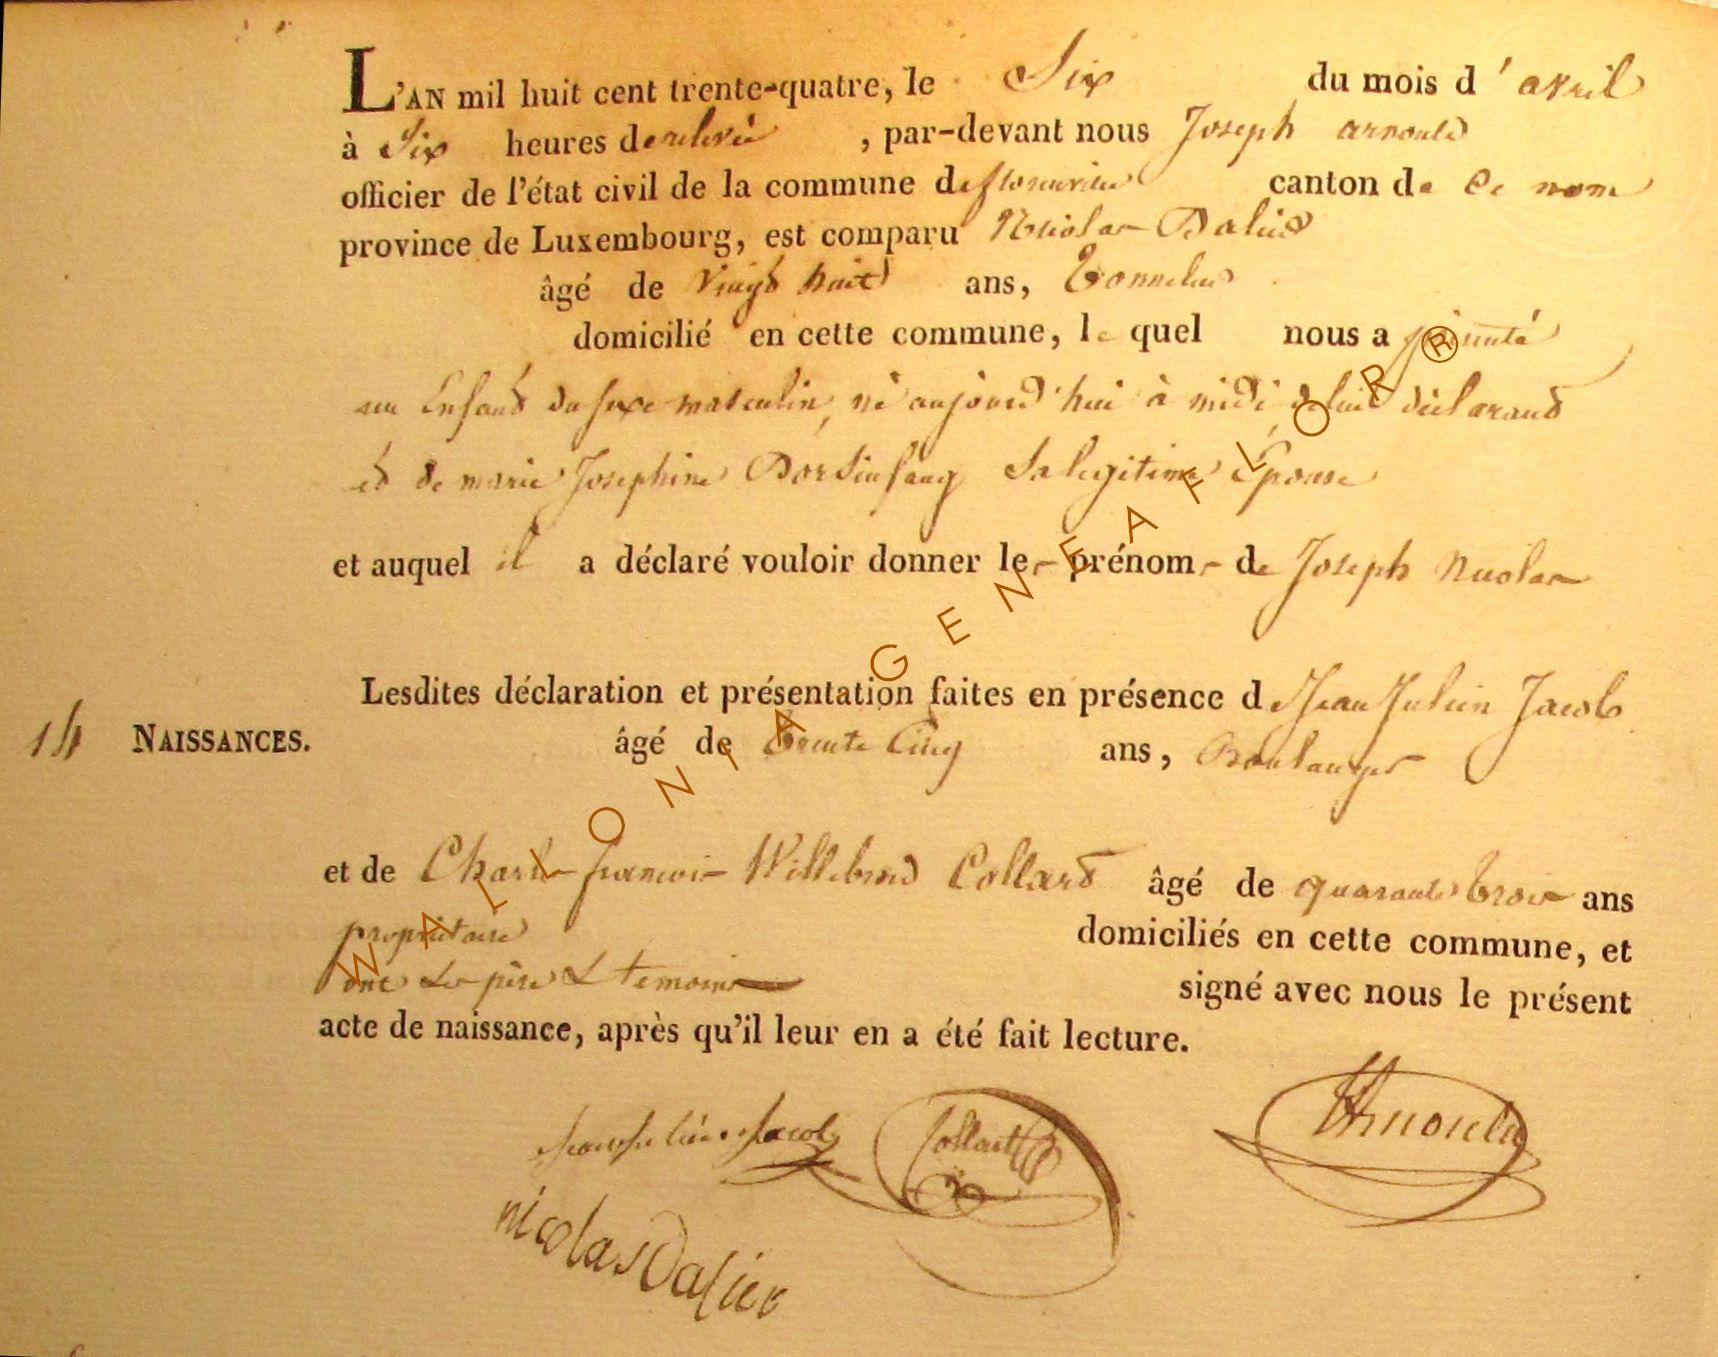 L'AN mil huit cent trente-quatre, le Six du mois d'avril
à Six heures de relevée, par-devant nous Joseph arnould
officier de l'état civil de la commune de florenville canton de Ce nom
province de Luxembourg, est comparu Nicolas Dalied
âgé de Vingt huit ans, Tonnelier
domicilié en cette commune, le quel nous a présenté
un Enfant du sexe masculin, né aujourd'hui à midi de lui déclarant
et de marie Josephine Dorsinfang Sa legitime Épouse
et auquel il a déclaré vouloir donner les prénoms de Joseph Nicolas
Lesdites déclaration et présentation faites en présence de Jean Julien Jacob
14 NAISSANCES. âgé de trente Cinq ans, Boulanger
et de Charles françois Willebrord Collard âgé de quarante trois ans
propriétaire domiciliés en cette commune, et
ont Les père & temoins signé avec nous le présent
acte de naissance, après qu'il leur en a été fait lecture.
Jean Julien Jacob Collard Arnould
nicolas Dalied
WALLONIA GENEAFLOR ®